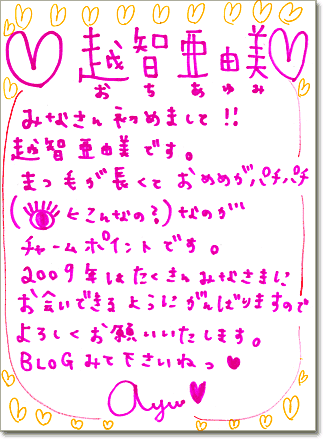 越智亜由美
おちあゆみ
みなさん初めまして!!
越智亜由美です。
まつ毛が長くて おめめがパチパチ
(とこんなの?)なのが
チャームポイントです。
2009年はたくさんみなさまに
お会いできるようにがんばりますので
よろしくお願いいたします。
BLOGみて下さいねっ
Ayu